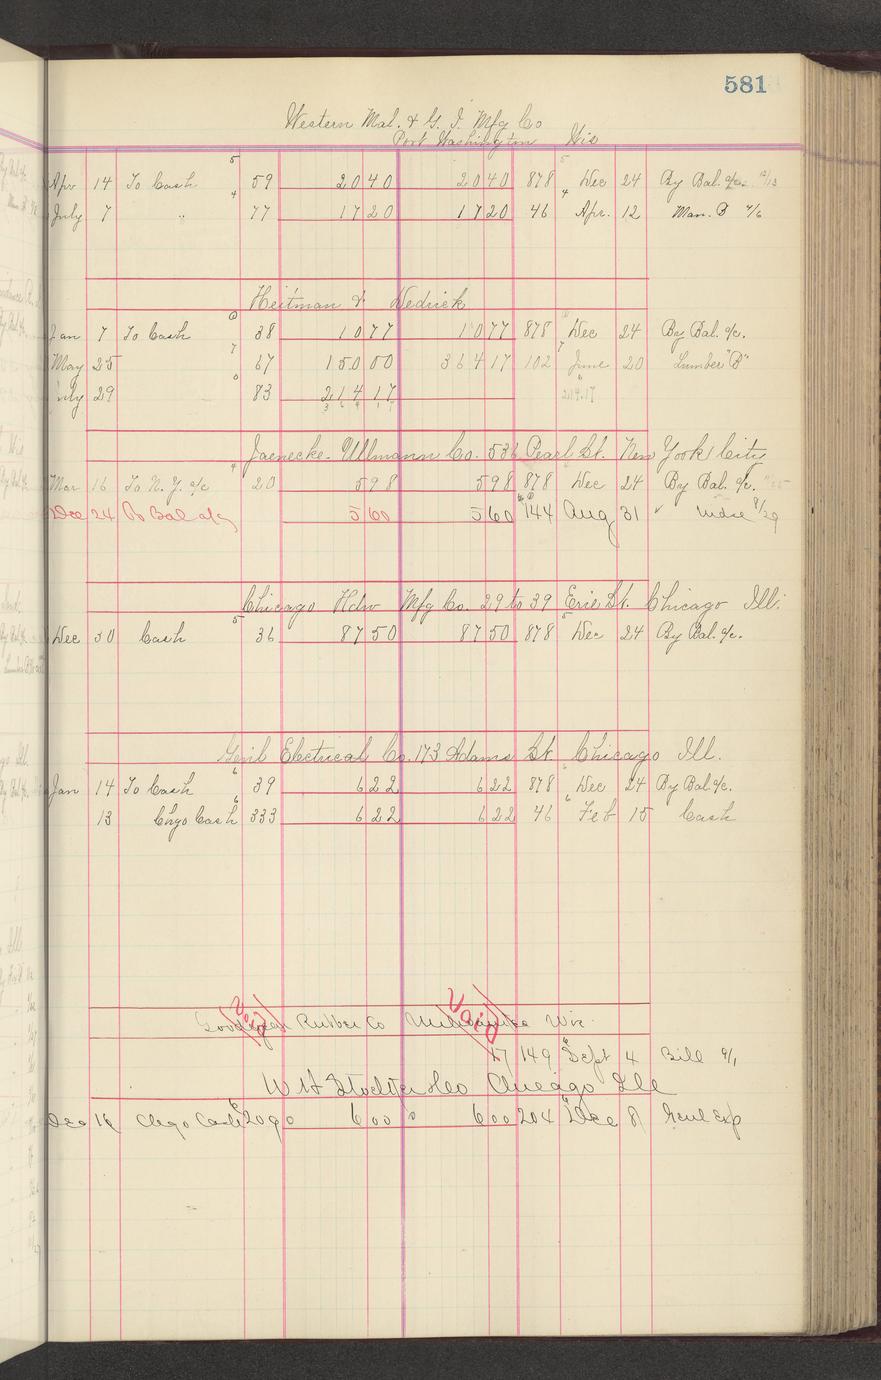 581
Western Mal. & G. I. Mfg Co
Port Washington Wis
Apr 14 To Cash 5 59 20 40 20 40 878 5 Dec 24 By Bal. a/c. 12/13
July 7 " 4 77 17 20 17 20 46 4 Apr. 12 Man. B 4/6
Heitman & Dedrick
Jan 7 To Cash 6 38 10 77 10 77 878 Dec 24 By Bal. a/c.
May 25 7 67 150 00 364 17 102 7 June 20 Lumber "B"
July 29 6 83 214 17 214.17
Jaenecke-Ullmann Co. 536 Pearl St. New York City
Mar 16 To N. Y. a/c 4 20 5 98 5 98 878 Dec 24 By Bal. a/c.
Dec 24 To Bal a/c 5 60 5 60 144 Aug 31 " Mdse 8/29
Chicago Hdw Mfg Co. 29 to 39 Erie St. Chicago Ill.
Dec 30 Cash 5 36 87 50 87 50 878 5 Dec 24 By Bal. a/c.
Genl Electrical Co. 173 Adams St. Chicago Ill.
Jan 14 To Cash 6 39 6 22 6 22 878 6 Dec 24 By Bal. a/c.
13 Chgo Cash 6 333 6 22 6 22 46 6 Feb 15 Cash
Void Void
Goodyear Rubber Co Milwaukee Wis
47 149 6 Sept 4 Bill 9/1
Co Chicago Ille
Dec 18 Chgo Cash 6 209 6 00 6 00 204 6 Dec 8 Genl Exp